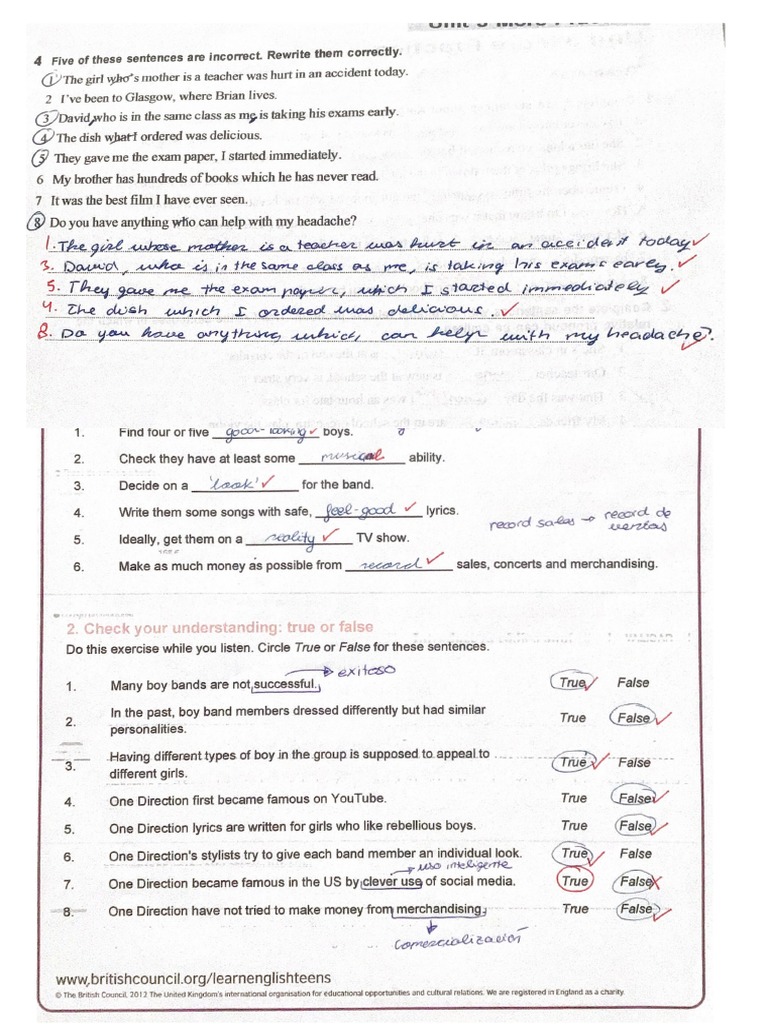 4 Five of these sentences are incorrect. Rewrite them correctly.
1 The girl who's mother is a teacher was hurt in an accident today.
2 I've been to Glasgow, where Brian lives.
3 David, who is in the same class as me, is taking his exams early.
4 The dish what I ordered was delicious.
5 They gave me the exam paper, I started immediately.
6 My brother has hundreds of books which he has never read.
7 It was the best film I have ever seen.
8 Do you have anything who can help with my headache?
1. The girl whose mother is a teacher was hurt in an accident today
3. David, who is in the same class as me, is taking his exams early.
5. They gave me the exam paper, which I started immediately
4. The dish which I ordered was delicious.
8. Do you have anything, which, can help with my headache?
1. Find four or five good-looking boys.
2. Check they have at least some musical ability.
3. Decide on a 'look' for the band.
4. Write them some songs with safe, feel-good lyrics.
record sales → record de
ventas
5. Ideally, get them on a reality TV show.
6. Make as much money as possible from record sales, concerts and merchandising.
2. Check your understanding: true or false
Do this exercise while you listen. Circle True or False for these sentences.
exitoso
1. Many boy bands are not successful. True False
2. In the past, boy band members dressed differently but had similar
personalities. True False
3. Having different types of boy in the group is supposed to appeal to
different girls. True False
4. One Direction first became famous on YouTube. True False
5. One Direction lyrics are written for girls who like rebellious boys. True False
6. One Direction's stylists try to give each band member an individual look. True False
uso inteligente
7. One Direction became famous in the US by clever use of social media. True False
8. One Direction have not tried to make money from merchandising. True False
comercialización
www.britishcouncil.org/learnenglishteens
© The British Council, 2012 The United Kingdom's international organisation for educational opportunities and cultural relations. We are registered in England as a charity.